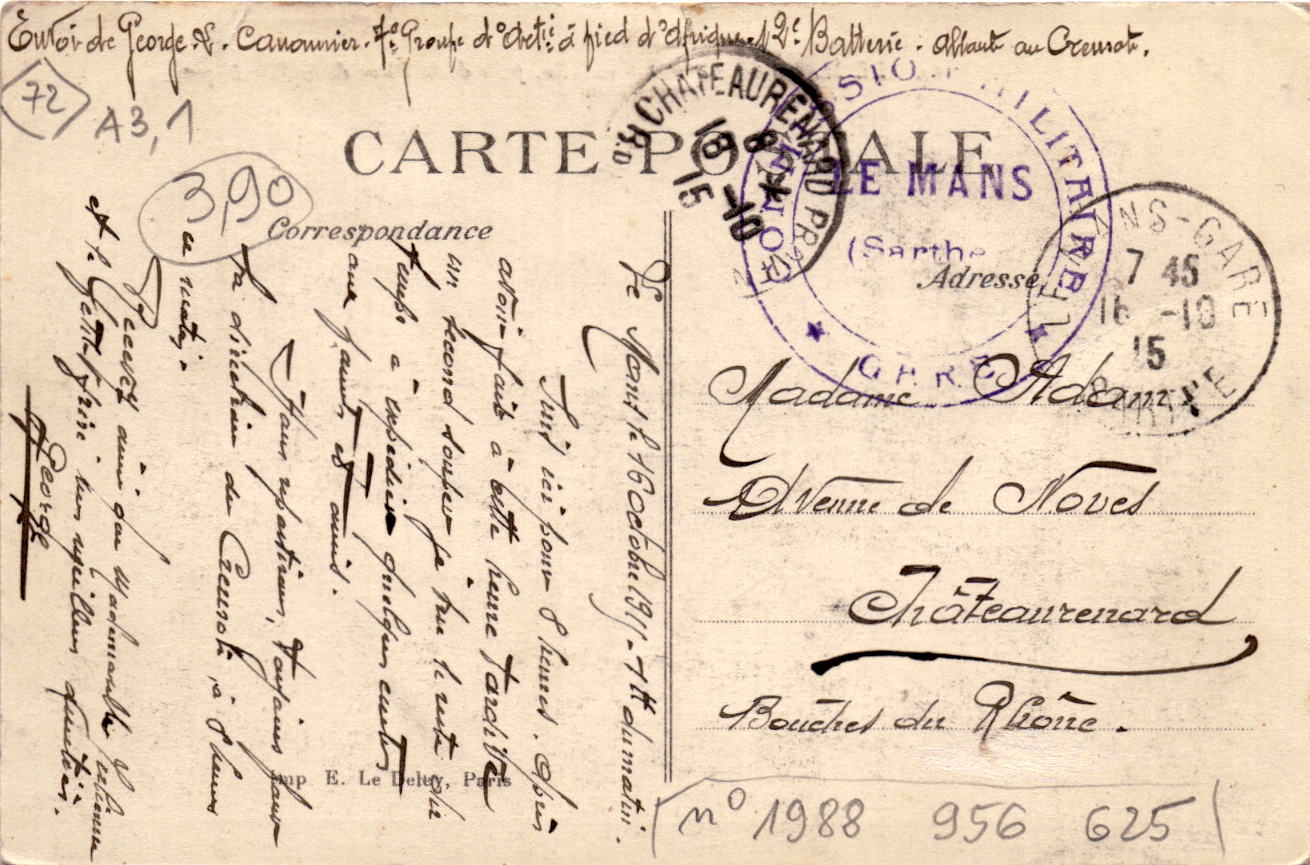 Envoi de George A. Canonnier. 7e Groupe d'Artie à pied d'Afrique. 12e Batterie. allant au Creusot.
72
A3,1
3,90
CARTE POSTALE
Correspondance
Adresse
CHATEAURENARD
18
15 -10
COMMISSION MILITAIRE
LE MANS
(Sarthe
GARE
LE MANS-GARE
7 45
16 -10
15
SARTHE
Le Mans le 16 Octobre 1915 - 7h du matin.
Suis ici pour 8 heures. Après
avoir fait à cette heure tardive
un second souper je
temps à expédier quelques cartes
aux parents et amis.
Nous repartirons, toujours pour
la direction du Creusot, à 8 heures
ce matin.
Recevez ainsi que Mademoiselle
et
George
Madame Adam
Avenue de Noves
Châteaurenard
Bouches du Rhône.
Imp. E. Le Deley, Paris
n° 1988 956 625